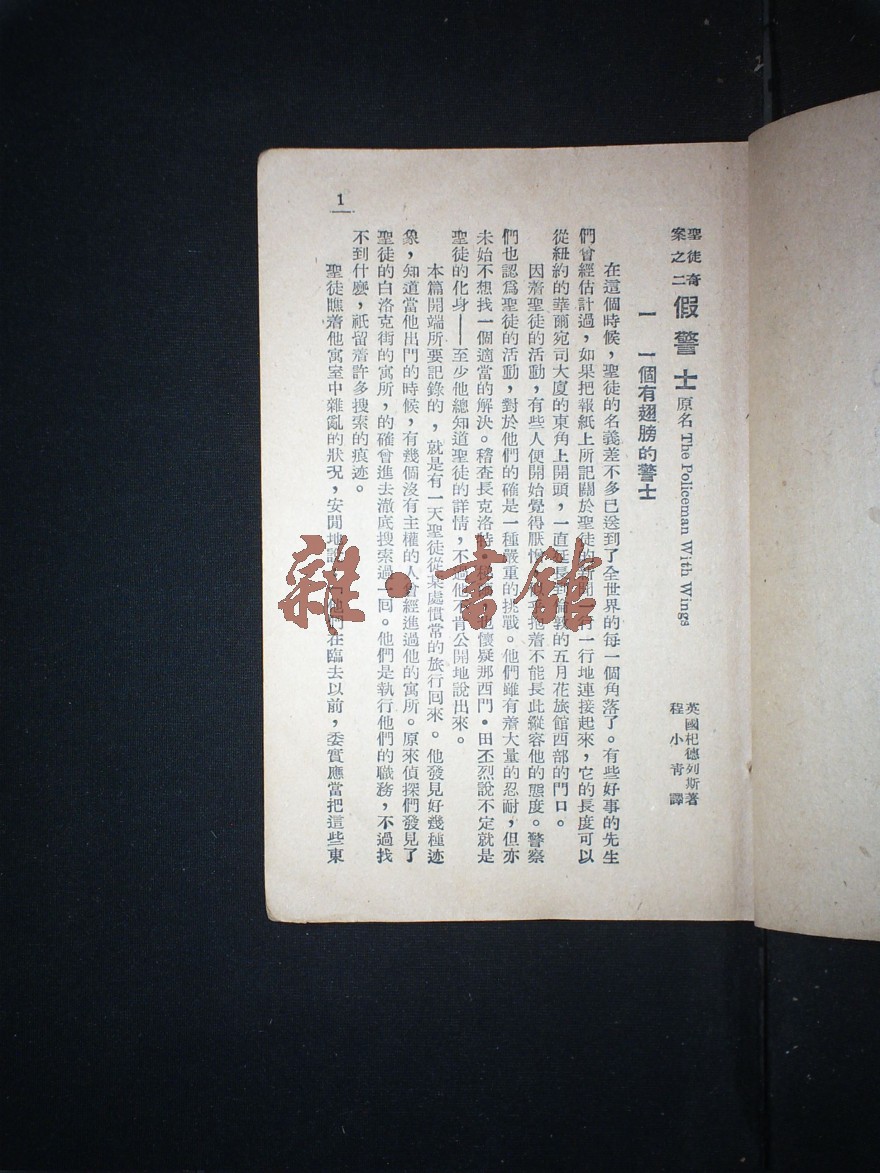 聖徒奇案之二 假警士 原名 The Policeman With Wings
英國杞德列斯著
程小青譯
一 一個有翅膀的警士
在這個時候，聖徒的名義差不多已送到了全世界的每一個角落了。有些好事的先生
們曾經估計過，如果把報紙上所記關於聖徒的新聞一行一行地連接起來，它的長度可以
從紐約的華爾宛司大廈的東角上開頭，一直延長到倫敦的五月花旅館西部的門口。
因着聖徒的活動，有些人便開始覺得厭憎，似乎抱着不能長此縱容他的態度。警察
們也認爲聖徒的活動，對於他們的確是一種嚴重的挑戰。他們雖有着大量的忍耐，但亦
未始不想找一個適當的解決。稽查長克洛特·他懷疑那西門·田丕烈說不定就是
聖徒的化身——至少他總知道聖徒的詳情，不過他不肯公開地說出來。
本篇開端所要記錄的，就是有一天聖徒從某處慣常的旅行囘來。他發見好幾種迹
象，知道當他出門的時候，有幾個沒有主權的人曾經進過他的寓所。原來偵探們發見了
聖徒的白洛克街的寓所，的確曾進去澈底搜索過一囘。他們是執行他們的職務，不過找
不到什麽，祇留着許多搜索的痕迹。
聖徒瞧着他寓室中雜亂的狀況，安閒地說：「他們在臨去以前，委實應當把這些東
1
雜·書館